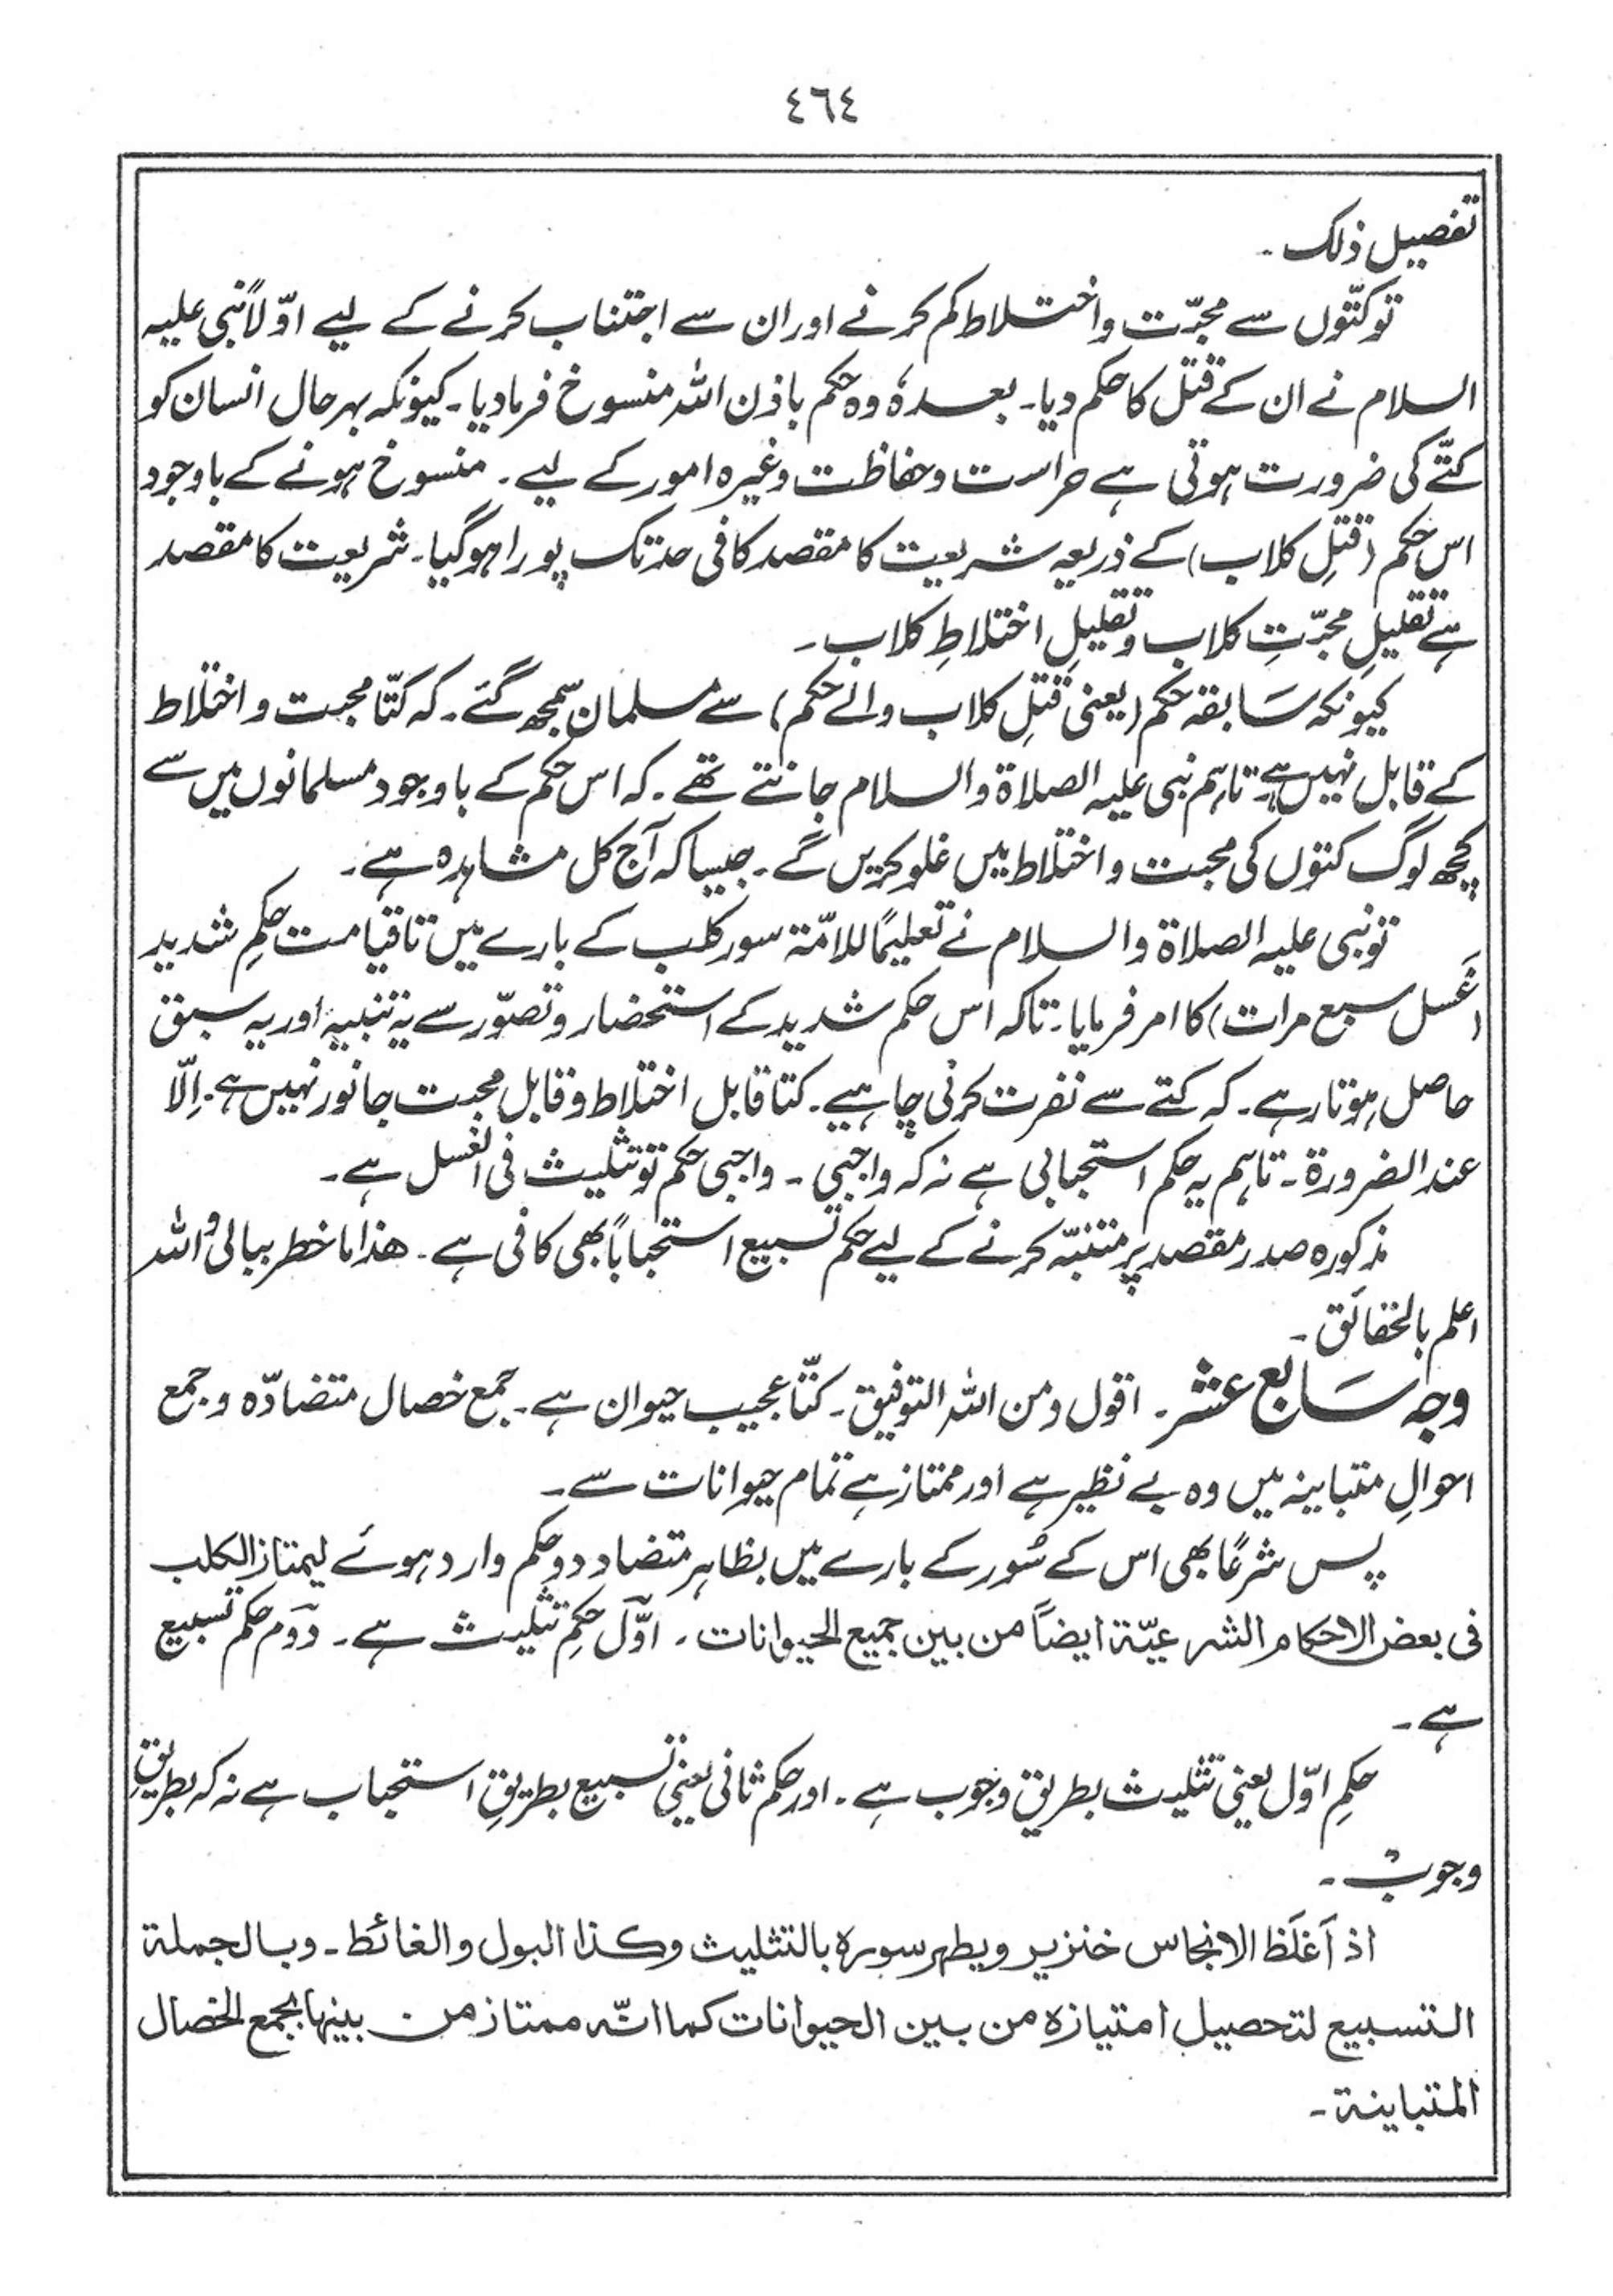 ٤٦٤
تفصیل ذلک۔
تو کتّوں سے محبّت و اختلاط کم کرنے اور ان سے اجتناب کرنے کے لیے اوّلاً نبی علیہ
السلام نے ان کے قتل کا حکم دیا۔ بعدہٗ وہ حکم باذن اللہ منسوخ فرما دیا۔ کیونکہ بہر حال انسان کو
کتّے کی ضرورت ہوتی ہے حراست و حفاظت وغیرہ امور کے لیے۔ منسوخ ہونے کے باوجود
اس حکم (قتلِ کلاب) کے ذریعہ شریعت کا مقصد کافی حد تک پورا ہوگیا۔ شریعت کا مقصد
ہے تقلیلِ محبّتِ کلاب و تقلیلِ اختلاطِ کلاب۔
کیونکہ سَابقہ حکم (یعنی قتلِ کلاب والے حکم) سے مسلمان سمجھ گئے۔ کہ کتّا محبت و اختلاط
کے قابل نہیں ہے۔ تاہم نبی علیہ الصلاۃ والسلام جانتے تھے۔ کہ اس حکم کے باوجود مسلمانوں میں سے
کچھ لوگ کتوں کی محبت و اختلاط میں غلو کریں گے۔ جیسا کہ آج کل مشاہدہ ہے۔
تو نبی علیہ الصلاۃ والسلام نے تعلیمًا للامّۃ سور کلب کے بارے میں تا قیامت حکمِ شدید
(غَسل سبع مرات) کا امر فرمایا۔ تاکہ اس حکم شدید کے استحضار و تصوّر سے یہ تنبیہ اور یہ سبق
حاصل ہوتا رہے۔ کہ کتے سے نفرت کرنی چاہیے۔ کتا قابل اختلاط و قابل محبت جانور نہیں ہے۔ اِلّا
عند الضرورۃ۔ تاہم یہ حکم استحبابی ہے نہ کہ واجبی۔ واجبی حکم تو تثلیث فی الغسل ہے۔
مذکورہ صدر مقصد پر متنبّہ کرنے کے لیے حکم تسبیع استحبابًا بھی کافی ہے۔ ھذا ما خطر ببالی واللہ
اعلم بالحقائق۔
وجہ سَابع عشر۔ اقول و من اللہ التوفیق۔ کتّا عجیب حیوان ہے۔ جمع خصال متضادّہ و جمع
احوالِ متباینہ میں وہ بے نظیر ہے اور ممتاز ہے تمام حیوانات سے۔
پس شرعًا بھی اس کے سُور کے بارے میں بظاہر متضاد دو حکم وارد ہوئے لیمتاز الکلب
فی بعض الاحکام الشرعیّۃ ایضًا من بین جمیع الحیوانات۔ اوّل حکمِ تثلیث ہے۔ دوم حکم تسبیع
ہے۔
حکمِ اوّل یعنی تثلیث بطریق وجوب ہے۔ اور حکم ثانی یعنی تسبیع بطریقِ استحباب ہے نہ کہ بطریقِ
وجوب۔
اذ اَغلَظ الانجاس خنزیر و یطہر سورہ بالتثلیث وکذا البول والغائط۔ وبالجملۃ
التسبیع لتحصیل امتیازہ من بین الحیوانات کما انّہ ممتاز من بینہا بجمع الخصال
المتباینۃ۔